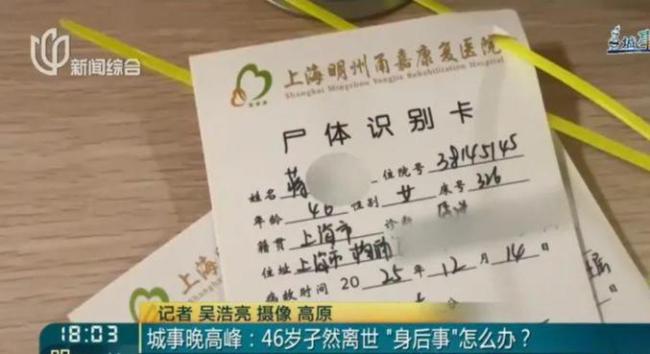 新闻综合
上海明州甬嘉康复医院
Shanghai Mingzhou Yongjia Rehabilitation Hospital
尸体识别卡
姓名 蒋 住院号 38145145
年龄 46 性别 女 床号 326
籍贯 上海市 诊断
住址 上海市
病故时间 2025年12月14日
记者 吴浩亮 摄像 高原
18:03 城事晚高峰：46岁孑然离世 "身后事"怎么办？